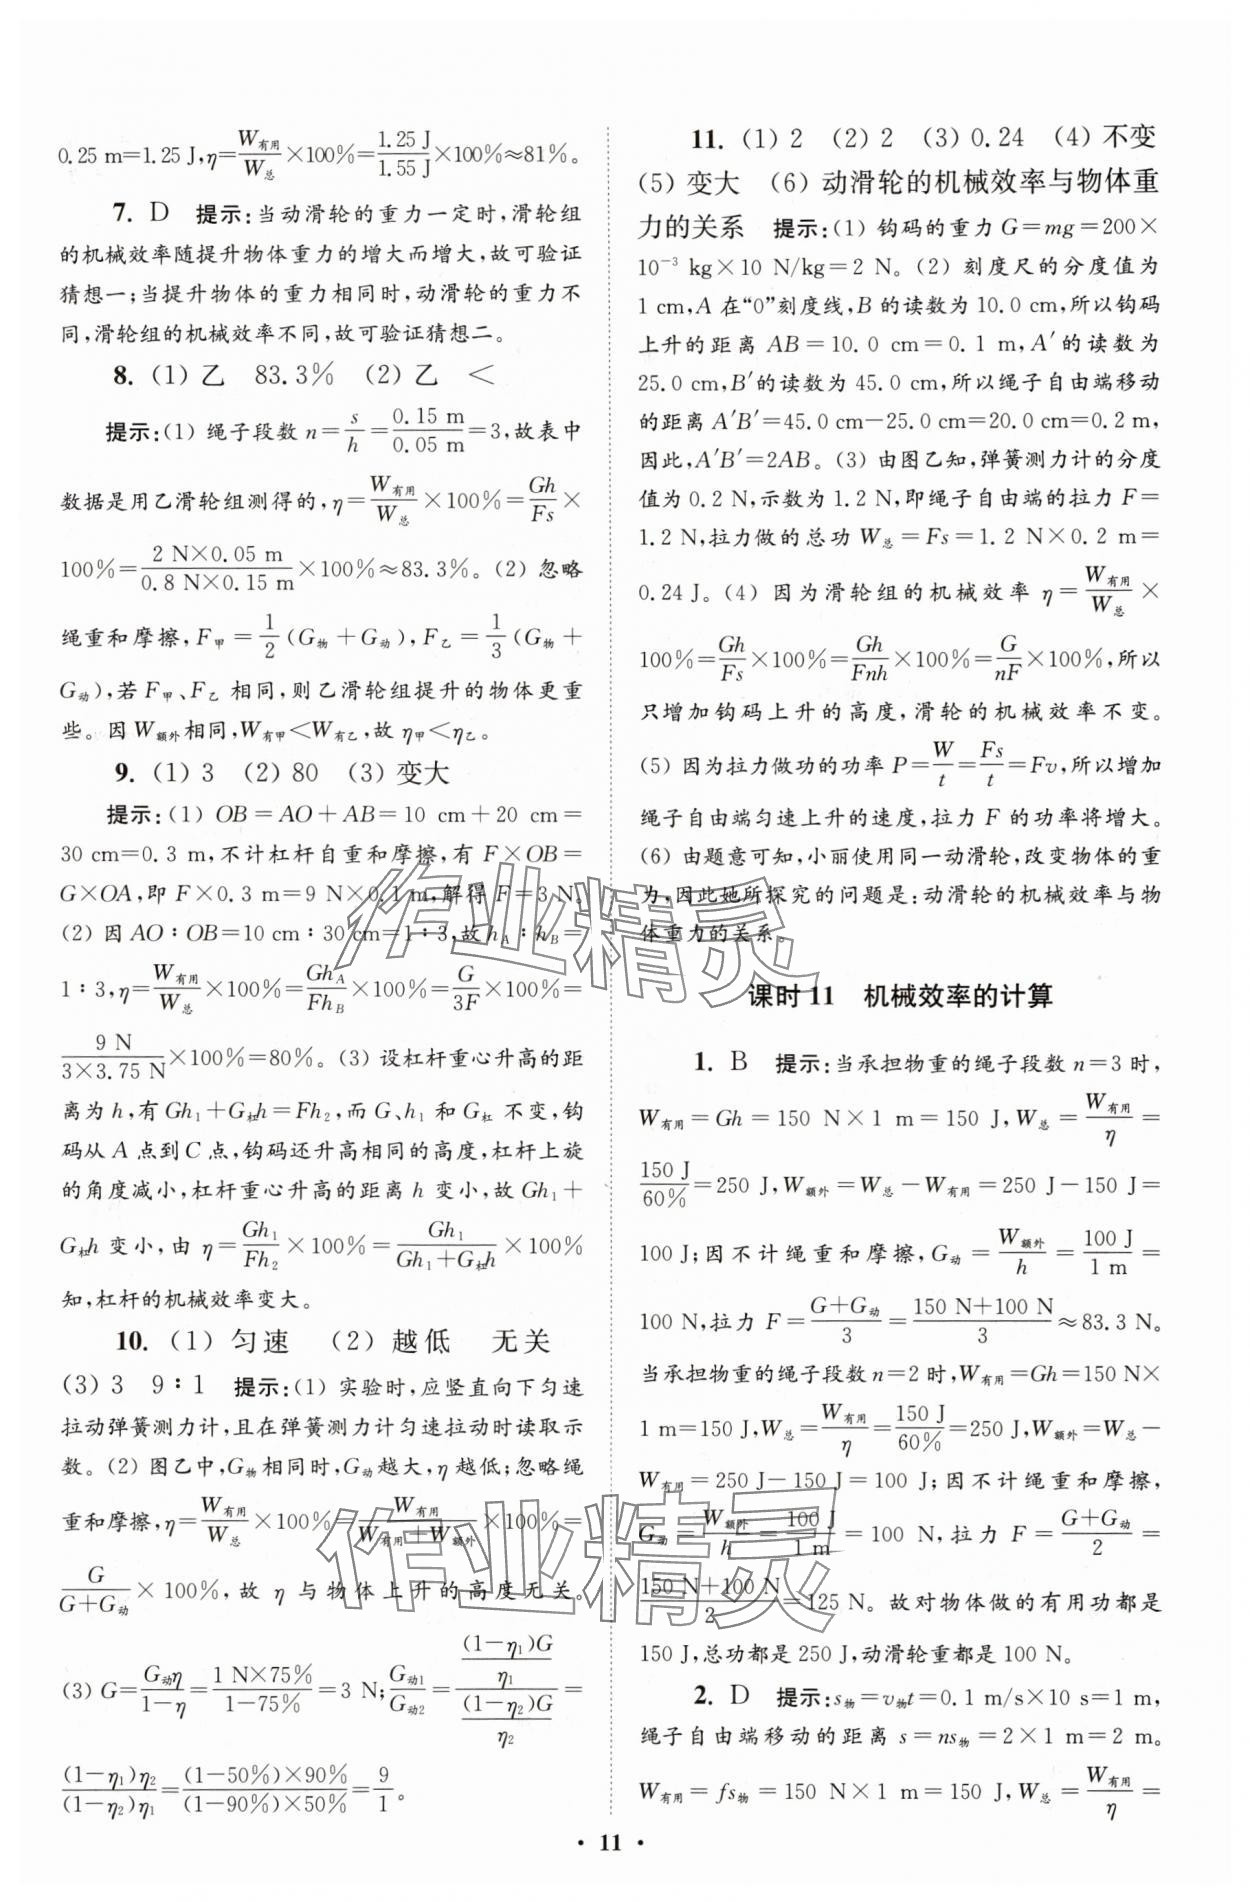 0.25 m=1.25 J,η=W有用/W总×100%=1.25 J/1.55 J×100%≈81%。
7. D 提示:当动滑轮的重力一定时,滑轮组
的机械效率随提升物体重力的增大而增大,故可验证
猜想一;当提升物体的重力相同时,动滑轮的重力不
同,滑轮组的机械效率不同,故可验证猜想二。
8. (1) 乙 83.3% (2) 乙 <
提示:(1) 绳子段数 n=s/h=0.15 m/0.05 m=3,故表中
数据是用乙滑轮组测得的,η=W有用/W总×100%=Gh/Fs×
100%=2 N×0.05 m/0.8 N×0.15 m×100%≈83.3%。(2) 忽略
绳重和摩擦,F甲=1/2(G物+G动),F乙=1/3(G物+
G动),若 F甲、F乙 相同,则乙滑轮组提升的物体更重
些。因W额外相同,W有甲<W有乙,故 η甲<η乙。
9. (1) 3 (2) 80 (3) 变大
提示:(1) OB=AO+AB=10 cm+20 cm=
30 cm=0.3 m,不计杠杆自重和摩擦,有 F×OB=
G×OA,即 F×0.3 m=9 N×0.1 m,解得 F=3 N。
(2) 因 AO∶OB=10 cm∶30 cm=1∶3,故 hA∶hB=
1∶3,η=W有用/W总×100%=GhA/FhB×100%=G/3F×100%=
9 N/3×3.75 N×100%=80%。(3) 设杠杆重心升高的距
离为 h,有 Gh1+G杠h=Fh2,而 G、h1 和 G杠 不变,钩
码从 A 点到 C 点,钩码还升高相同的高度,杠杆上旋
的角度减小,杠杆重心升高的距离 h 变小,故 Gh1+
G杠h 变小,由 η=Gh1/Fh2×100%=Gh1/(Gh1+G杠h)×100%
知,杠杆的机械效率变大。
10. (1) 匀速 (2) 越低 无关
(3) 3 9∶1 提示:(1) 实验时,应竖直向下匀速
拉动弹簧测力计,且在弹簧测力计匀速拉动时读取示
数。(2) 图乙中,G物相同时,G动越大,η 越低;忽略绳
重和摩擦,η=W有用/W总×100%=W有用/(W有用+W额外)×100%=
G/(G+G动)×100%,故 η 与物体上升的高度无关。
(3) G=G动η/(1-η)=1 N×75%/(1-75%)=3 N;G动1/G动2=((1-η1)G/η1)/((1-η2)G/η2)=
(1-η1)η2/(1-η2)η1=(1-50%)×90%/(1-90%)×50%=9/1。
11. (1) 2 (2) 2 (3) 0.24 (4) 不变
(5) 变大 (6) 动滑轮的机械效率与物体重
力的关系 提示:(1) 钩码的重力 G=mg=200×
10⁻³ kg×10 N/kg=2 N。(2) 刻度尺的分度值为
1 cm,A 在“0”刻度线,B 的读数为 10.0 cm,所以钩码
上升的距离 AB=10.0 cm=0.1 m,A′的读数为
25.0 cm,B′的读数为 45.0 cm,所以绳子自由端移动
的距离 A′B′=45.0 cm-25.0 cm=20.0 cm=0.2 m,
因此,A′B′=2AB。(3) 由图乙知,弹簧测力计的分度
值为 0.2 N,示数为 1.2 N,即绳子自由端的拉力 F=
1.2 N,拉力做的总功 W总=Fs=1.2 N×0.2 m=
0.24 J。(4) 因为滑轮组的机械效率 η=W有用/W总×
100%=Gh/Fs×100%=Gh/Fnh×100%=G/nF×100%,所以
只增加钩码上升的高度,滑轮的机械效率不变。
(5) 因为拉力做功的功率 P=W/t=Fs/t=Fv,所以增加
绳子自由端匀速上升的速度,拉力 F 的功率将增大。
(6) 由题意可知,小丽使用同一动滑轮,改变物体的重
力,因此她所探究的问题是:动滑轮的机械效率与物
体重力的关系。
课时 11 机械效率的计算
1. B 提示:当承担物重的绳子段数 n=3 时,
W有用=Gh=150 N×1 m=150 J,W总=W有用/η=
150 J/60%=250 J,W额外=W总-W有用=250 J-150 J=
100 J;因不计绳重和摩擦,G动=W额外/h=100 J/1 m=
100 N,拉力 F=(G+G动)/3=(150 N+100 N)/3≈83.3 N。
当承担物重的绳子段数 n=2 时,W有用=Gh=150 N×
1 m=150 J,W总=W有用/η=150 J/60%=250 J,W额外=W总-
W有用=250 J-150 J=100 J;因不计绳重和摩擦,
G动=W额外/h=100 J/1 m=100 N,拉力 F=(G+G动)/2=
(150 N+100 N)/2=125 N。故对物体做的有用功都是
150 J,总功都是 250 J,动滑轮重都是 100 N。
2. D 提示:s物=v物t=0.1 m/s×10 s=1 m,
绳子自由端移动的距离 s=ns物=2×1 m=2 m。
W有用=fs物=150 N×1 m=150 J,W总=W有用/η=
• 11 •
作业精灵
作业精灵